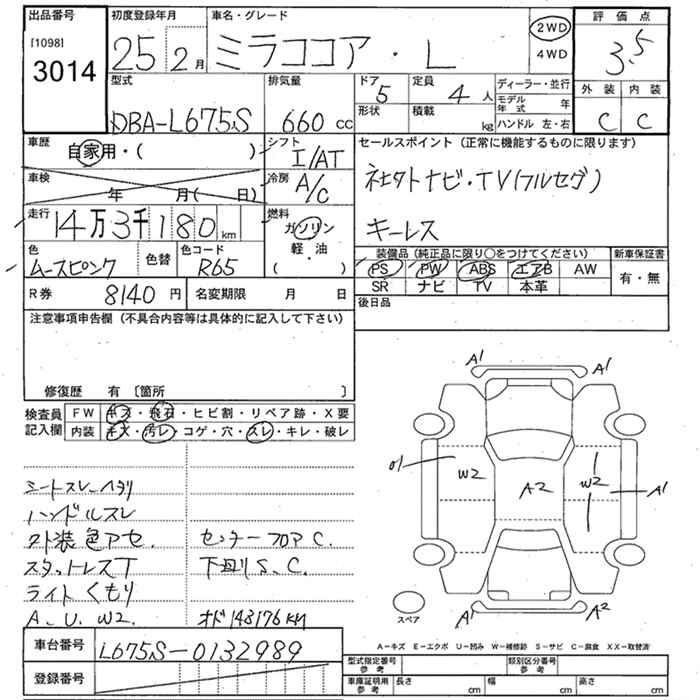 出品番号
[1098]
3014
初度登録年月
25年2月
車名・グレード
ミラココア・L
2WD
4WD
評価点
3.5
外装 内装
C C
型式
DBA-L675S
排気量
660 cc
ドア
5
定員
4人
形状
積載
kg
ディーラー・並行
モデル年式 年
ハンドル 左・右
車歴
自家用・( )
シフト
I/AT
車検
年 月( 日)
冷房
A/C
走行
14万3千180km
燃料
ガソリン
軽・油
( )
色
ムースピンク
色替
色コード
R65
セールスポイント(正常に機能するものに限ります)
ネオクトナビ・TV(フルセグ)
キーレス
装備品(純正品に限り○をつけてください)
PS PW ABS エアB AW
SR ナビ TV 本革
新車保証書
有・無
後日品
R券
8140円
名変期限 月 日
注意事項申告欄(不具合内容等は具体的に記入して下さい)
修復歴 有 〔箇所 〕
検査員記入欄
FW キズ・飛石・ヒビ割・リペア跡・X要
内装 キズ・汚レ・コゲ・穴・スレ・キレ・破レ
シートスレ ヘタリ
ハンドルスレ
外装色アセ. センターフロア C.
スタットレスT 下廻りS、C.
ライトくもり
A、U、W2 オド143176KM
A1 A1
W2 A2 W2 A1
A2 A2
スペア
A-キズ E-エクボ U-凹み W-補修跡 S-サビ C-腐食 XX-取替済
車台番号
L675S-0132989
登録番号
型式指定番号参考
類別区分番号参考
車庫証明用参考
長さ cm 幅 cm 高さ cm